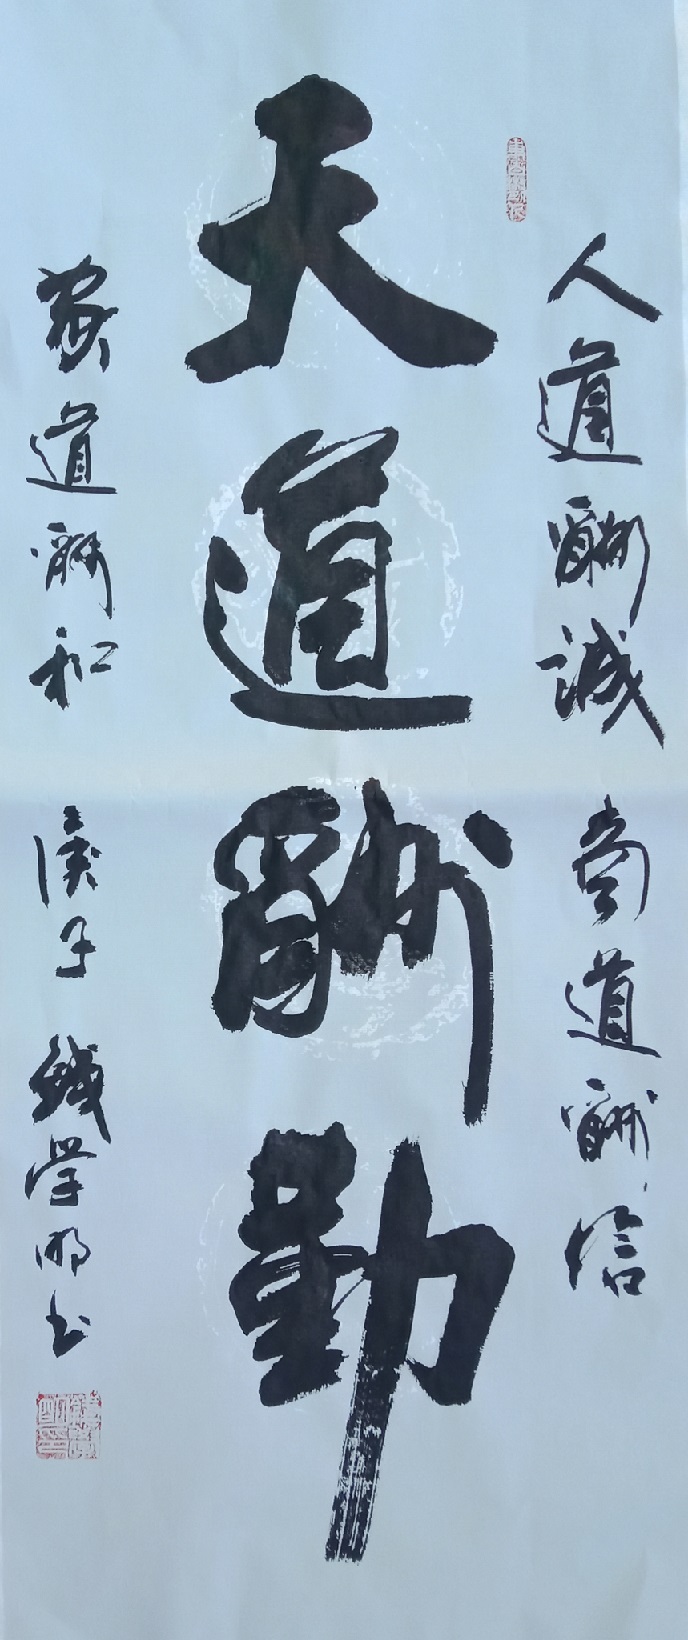 人道酬诚 商道酬信
天道酬勤
家道酬和 庚子 学明书